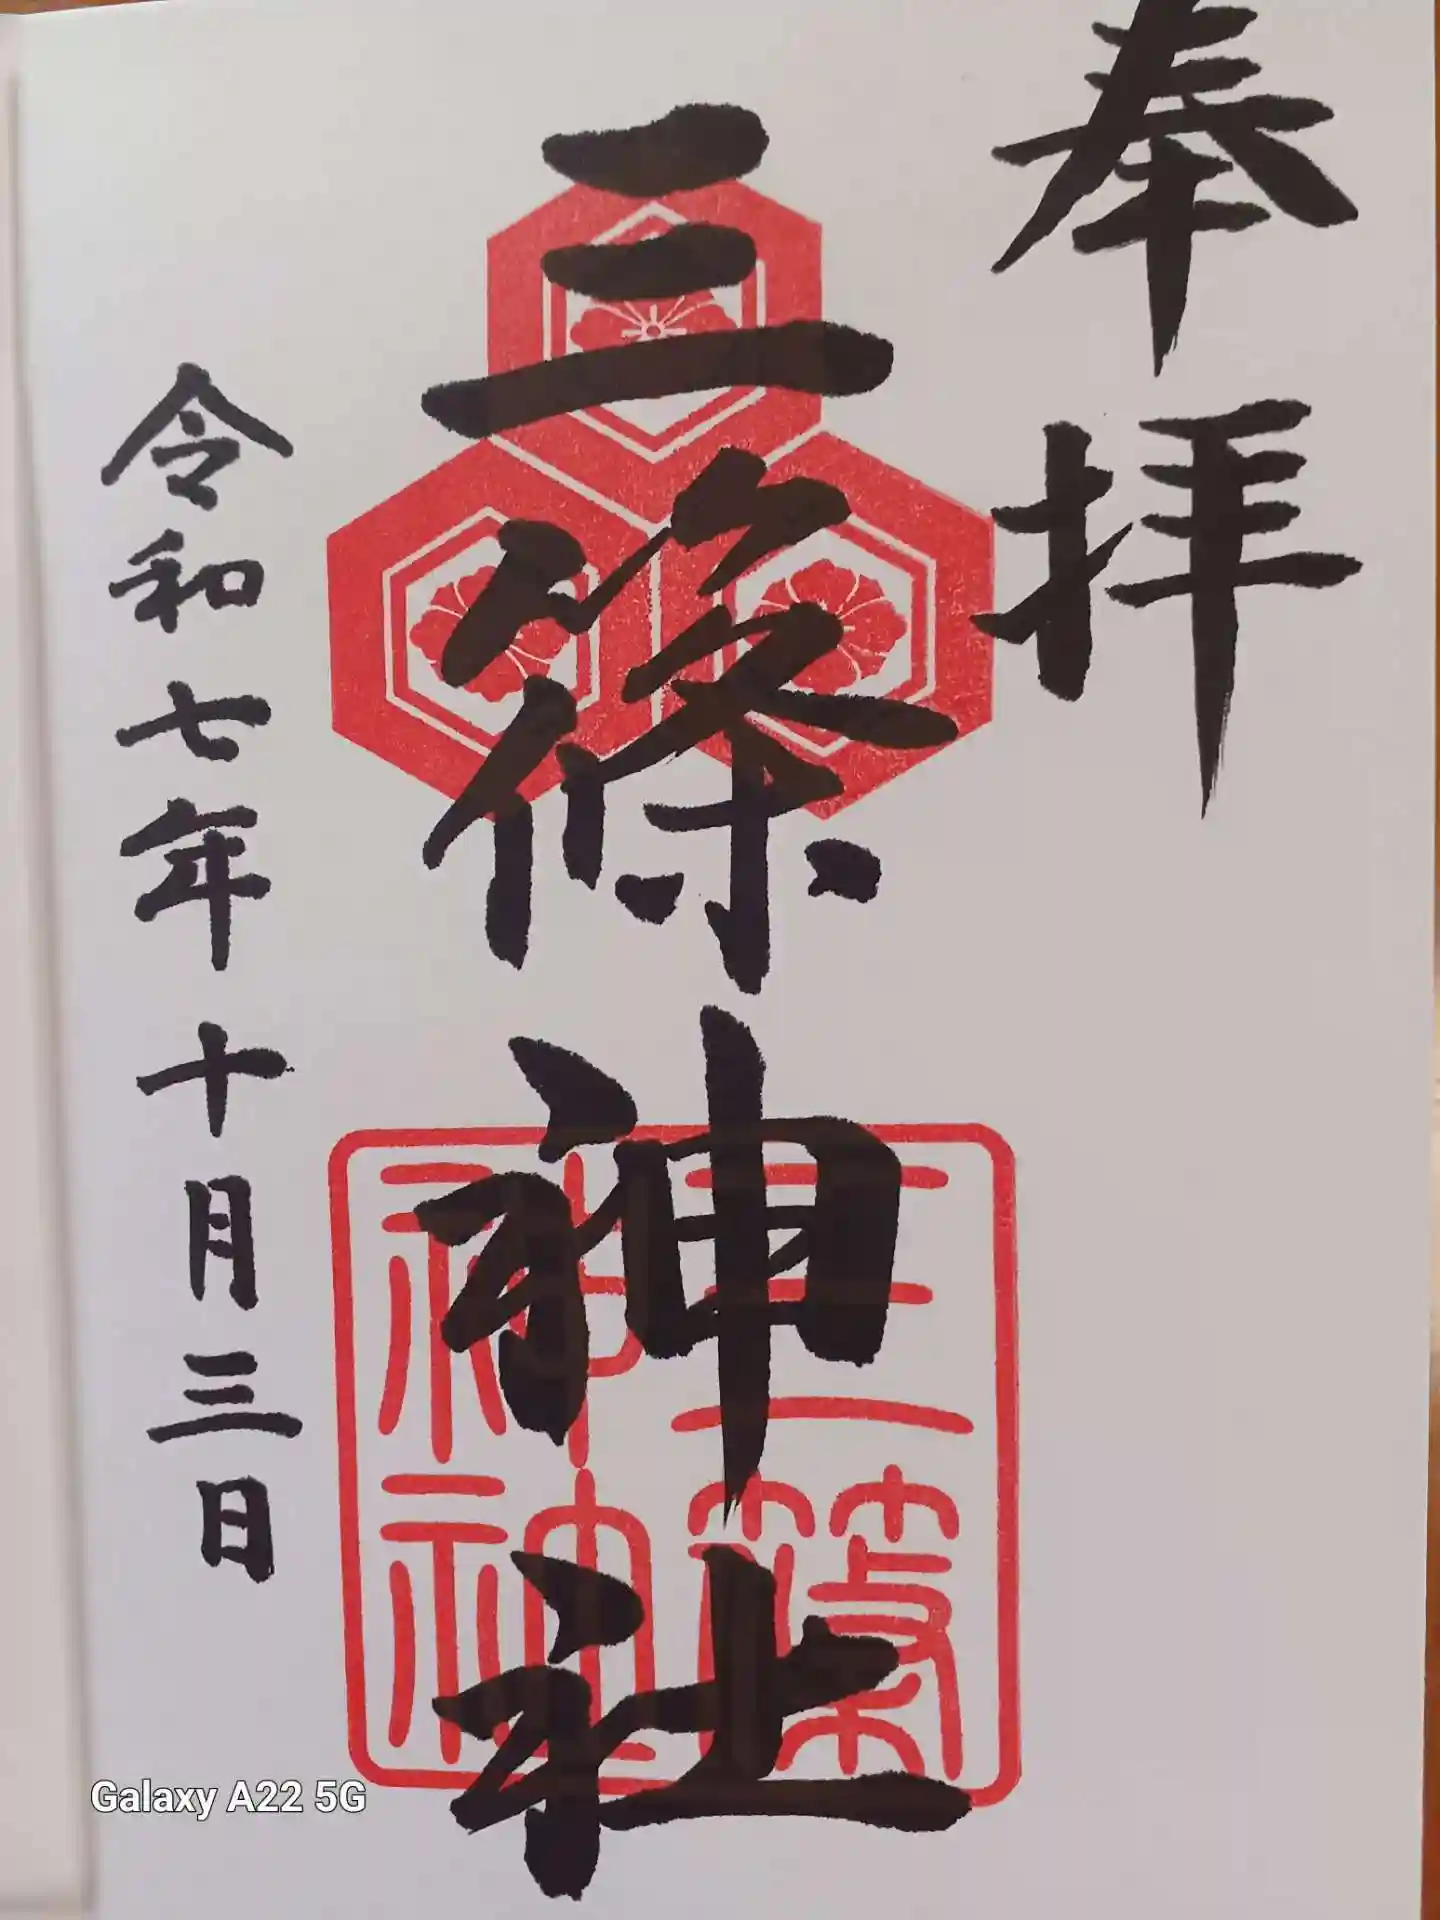 奉拝
三篠神社
三篠神社
令和七年十月三日
Galaxy A22 5G